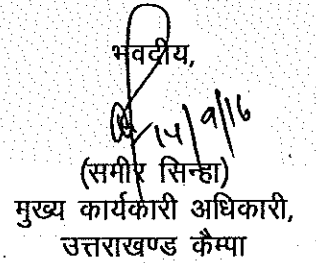 भवदीय,
14/9/16
(समीर सिन्हा)
मुख्य कार्यकारी अधिकारी,
उत्तराखण्ड कैम्पा